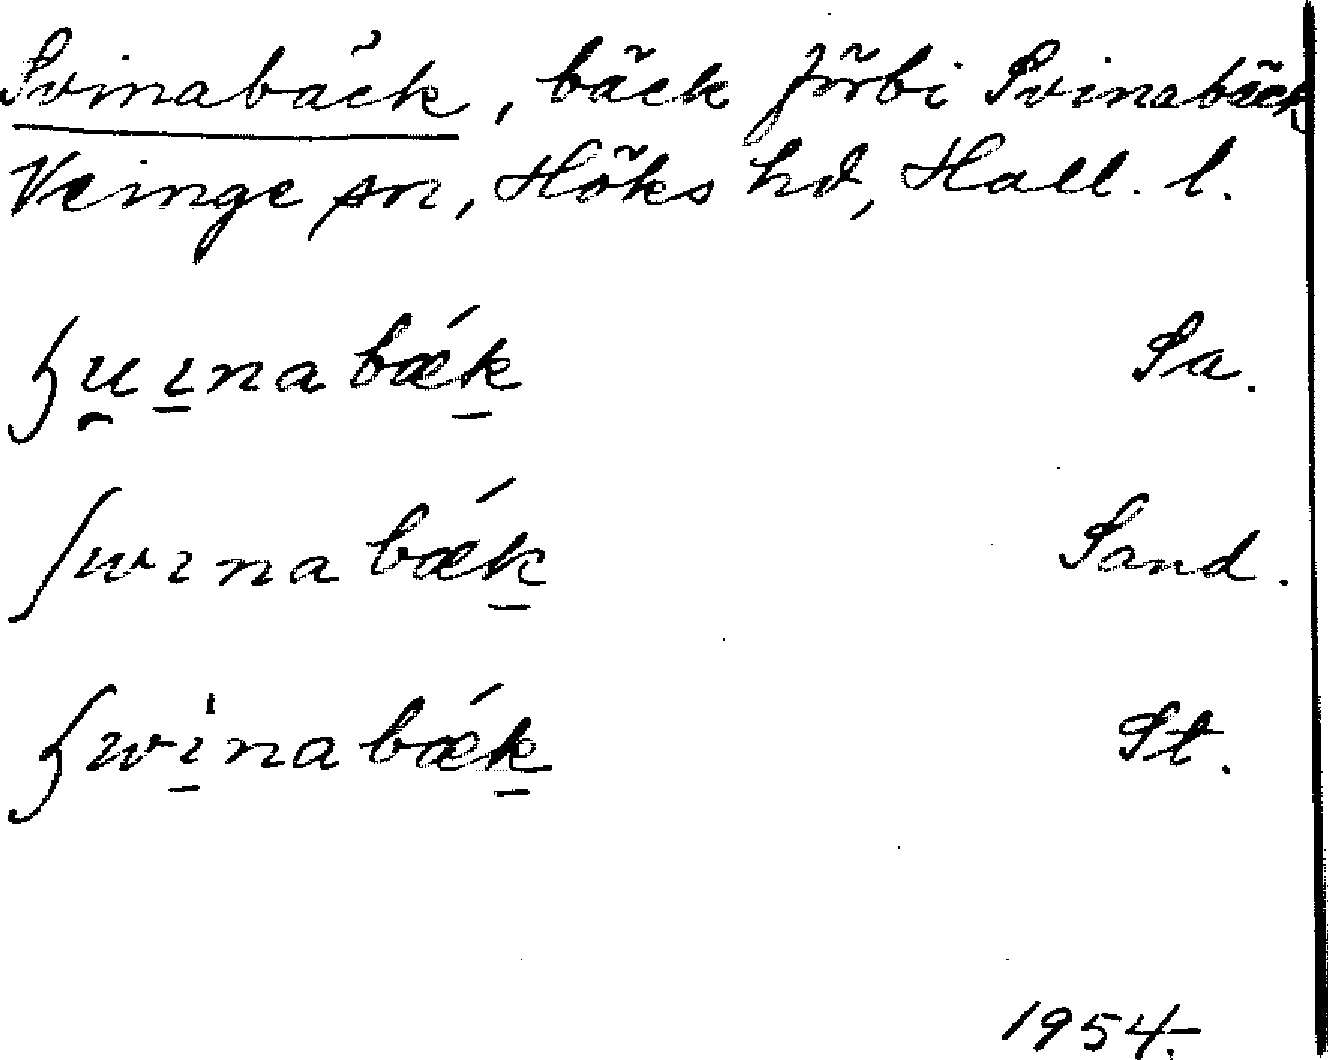 Svinabäck, bäck förbi Svinabäck
Veinge sn, Höks hd, Hall. l.
ʃu̯ı̱nabǽḵ Sa.
ʃwınabǽḵ Sand.
ʃwı̱̍nabǽḵ St.
1954.